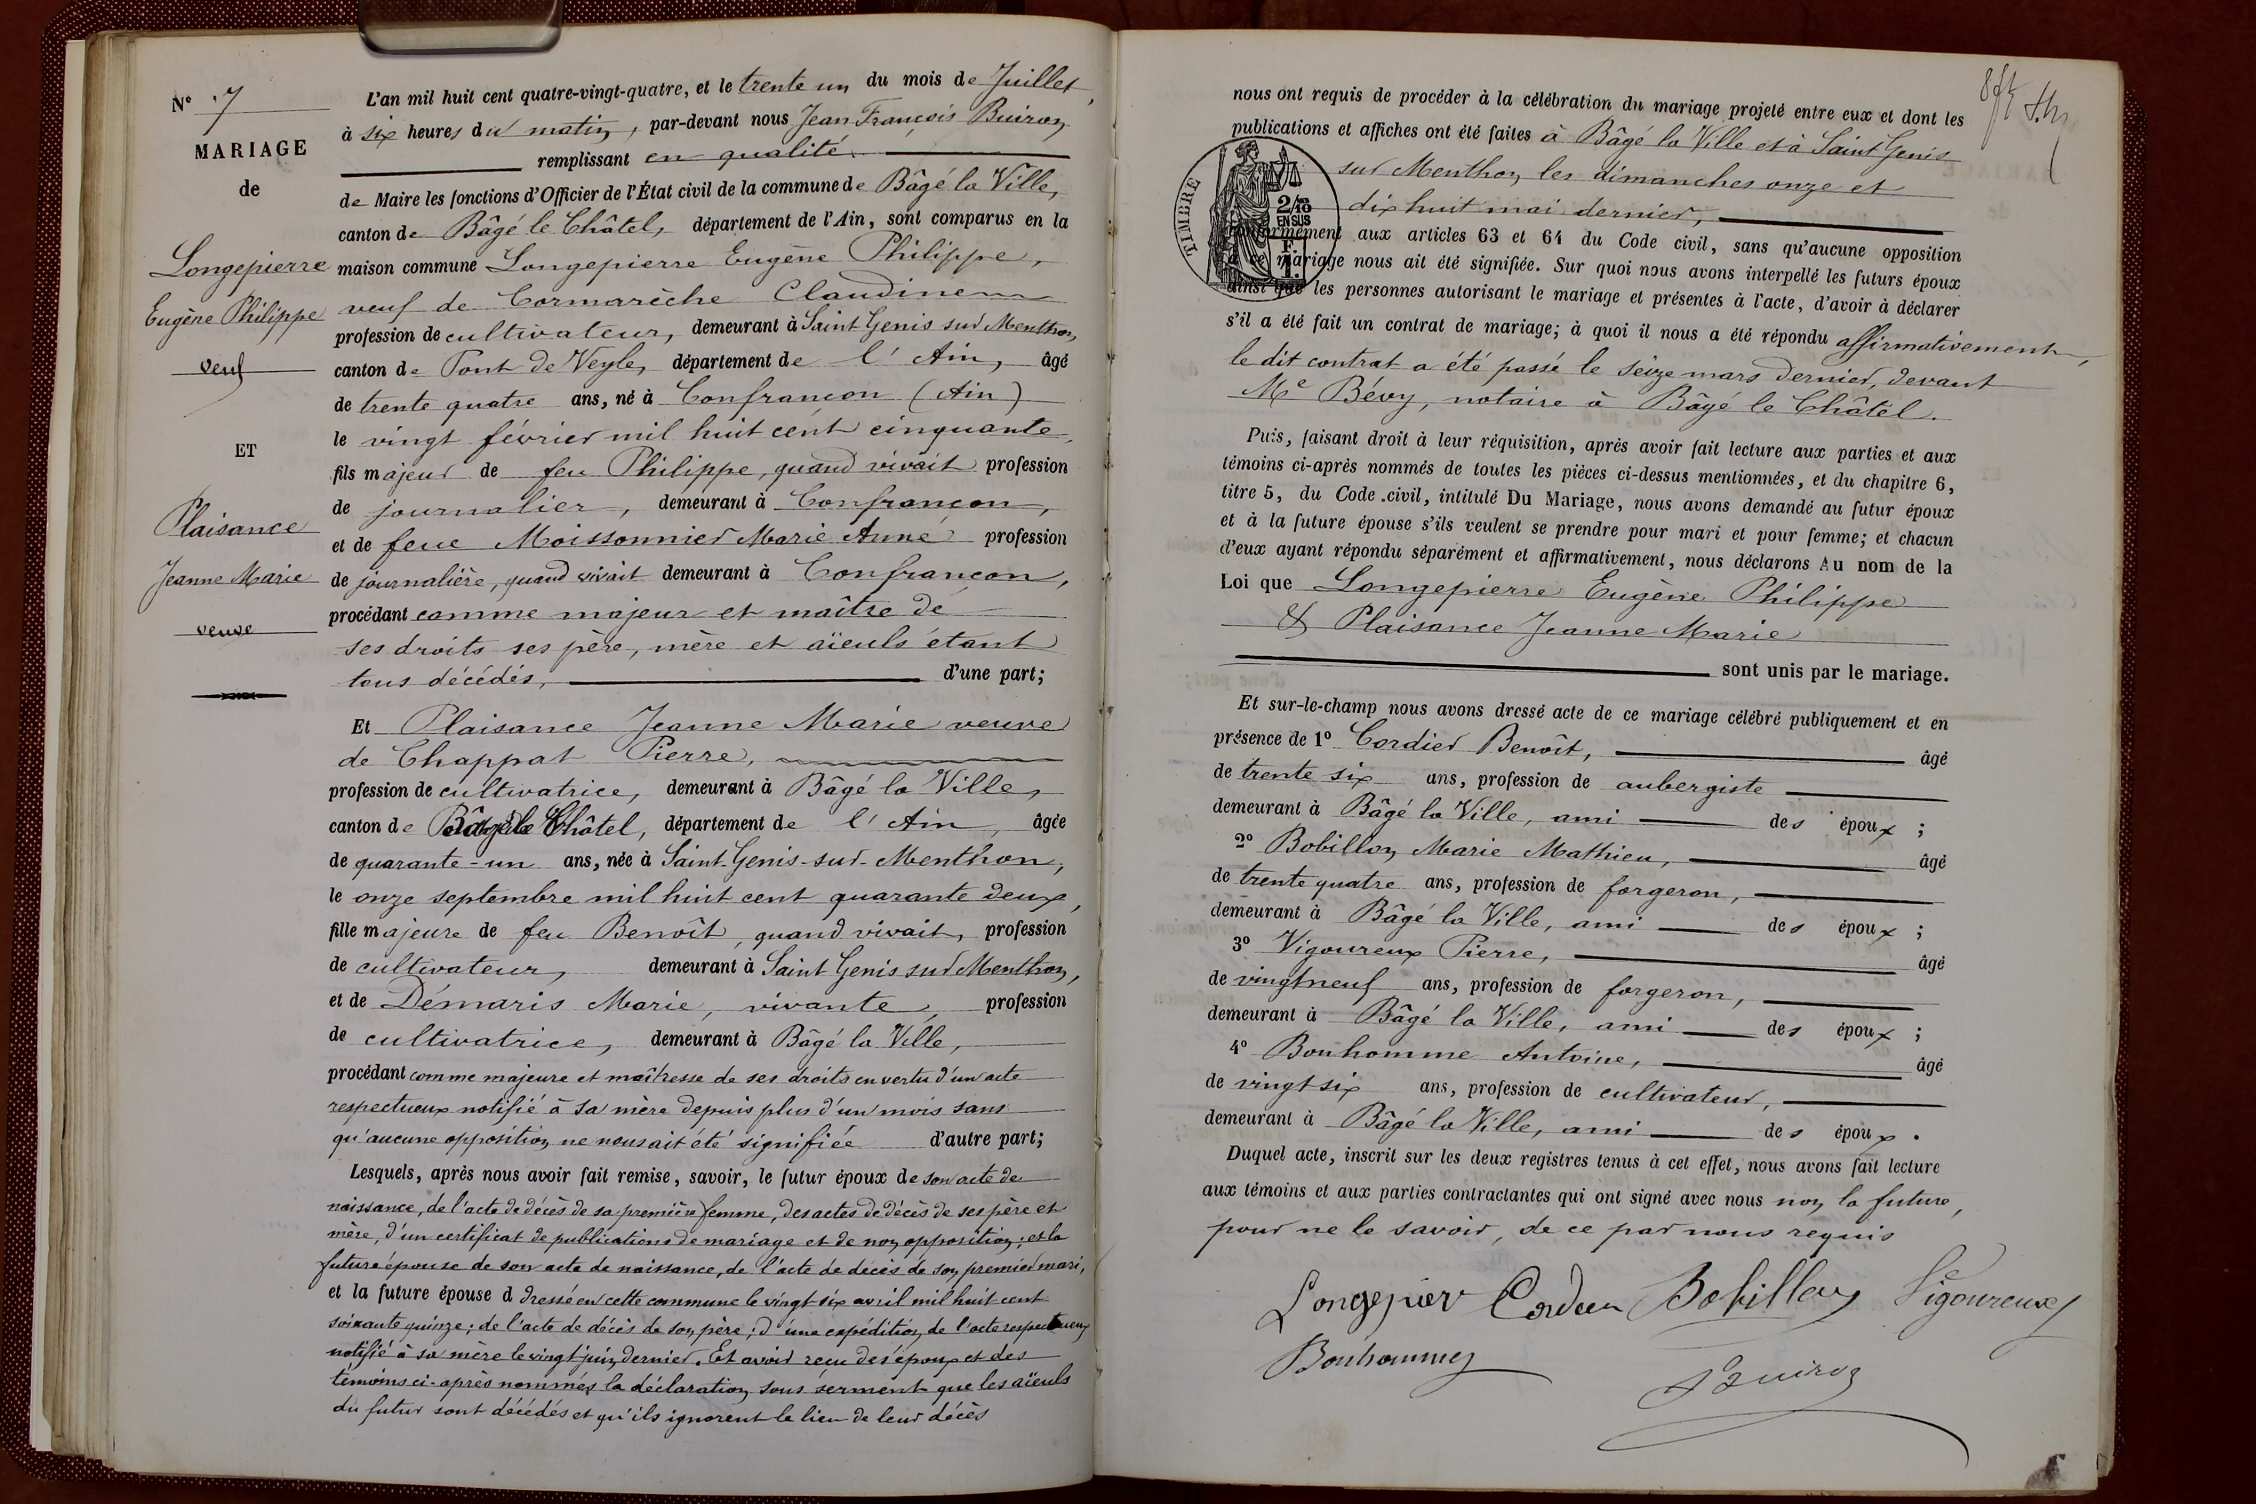 N° 7
MARIAGE
de
Longepierre
Eugène Philippe
veuf
ET
Plaisance
Jeanne Marie
veuve
L'an mil huit cent quatre-vingt-quatre, et le trente un du mois de Juillet,
à six heures du matin, par-devant nous Jean François Buiron
remplissant en qualité
de Maire les fonctions d'Officier de l'État civil de la commune de Bâgé la Ville,
canton de Bâgé le Châtel, département de l'Ain, sont comparus en la
maison commune Longepierre Eugène Philippe,
veuf de Cormarèche Claudine
profession de cultivateur, demeurant à Saint Genis sur Menthon,
canton de Pont de Veyle, département de l'Ain, âgé
de trente quatre ans, né à Confrançon (Ain)
le vingt février mil huit cent cinquante,
fils majeur de feu Philippe, quand vivait profession
de journalier, demeurant à Confrançon,
et de feue Moissonnier Marie Anne profession
de journalière, quand vivait demeurant à Confrançon,
procédant comme majeur et maître de
ses droits ses père, mère et aïeuls étant
tous décédés, d'une part;
Et Plaisance Jeanne Marie veuve
de Chappat Pierre,
profession de cultivatrice, demeurant à Bâgé la Ville,
canton de Bâgé le Châtel, département de l'Ain, âgée
de quarante-un ans, née à Saint-Genis-sur-Menthon,
le onze septembre mil huit cent quarante deux,
fille majeure de feu Benoît, quand vivait, profession
de cultivateur, demeurant à Saint Genis sur Menthon,
et de Démaris Marie, vivante, profession
de cultivatrice, demeurant à Bâgé la Ville,
procédant comme majeure et maîtresse de ses droits en vertu d'un acte
respectueux notifié à sa mère depuis plus d'un mois sans
qu'aucune opposition ne nous ait été signifiée d'autre part;
Lesquels, après nous avoir fait remise, savoir, le futur époux de son acte de
naissance, de l'acte de décès de sa première femme, des actes de décès de ses père et
mère, d'un certificat de publications de mariage et de non opposition; et la
future épouse de son acte de naissance, de l'acte de décès de son premier mari,
et la future épouse d dressé en cette commune le vingt six avril mil huit cent
soixante quinze; de l'acte de décès de son père; d'une expédition de l'acte respectueux
notifié à sa mère le vingt juin dernier. Et avoir reçu des époux et des
témoins ci-après nommés la déclaration sous serment que les aïeuls
du futur sont décédés et qu'ils ignorent le lieu de leur décès
nous ont requis de procéder à la célébration du mariage projeté entre eux et dont les
publications et affiches ont été faites à Bâgé la Ville et à Saint Genis
sur Menthon les dimanches onze et
dix huit mai dernier,
TIMBRE
2/10
EN SUS
F.
1.
conformément aux articles 63 et 64 du Code civil, sans qu'aucune opposition
à ce mariage nous ait été signifiée. Sur quoi nous avons interpellé les futurs époux
ainsi que les personnes autorisant le mariage et présentes à l'acte, d'avoir à déclarer
s'il a été fait un contrat de mariage; à quoi il nous a été répondu affirmativement,
le dit contrat a été passé le seize mars dernier, devant
Me Bévy, notaire à Bâgé le Châtel.
Puis, faisant droit à leur réquisition, après avoir fait lecture aux parties et aux
témoins ci-après nommés de toutes les pièces ci-dessus mentionnées, et du chapitre 6,
titre 5, du Code civil, intitulé Du Mariage, nous avons demandé au futur époux
et à la future épouse s'ils veulent se prendre pour mari et pour femme; et chacun
d'eux ayant répondu séparément et affirmativement, nous déclarons Au nom de la
Loi que Longepierre Eugène Philippe
& Plaisance Jeanne Marie
sont unis par le mariage.
Et sur-le-champ nous avons dressé acte de ce mariage célébré publiquement et en
présence de 1° Cordier Benoît, âgé
de trente six ans, profession de aubergiste
demeurant à Bâgé la Ville, ami des époux;
2° Bobillon Marie Mathieu, âgé
de trente quatre ans, profession de forgeron,
demeurant à Bâgé la Ville, ami des époux;
3° Vigoureux Pierre, âgé
de vingt neuf ans, profession de forgeron,
demeurant à Bâgé la Ville, ami des époux;
4° Bonhomme Antoine, âgé
de vingt six ans, profession de cultivateur,
demeurant à Bâgé la Ville, ami des époux.
Duquel acte, inscrit sur les deux registres tenus à cet effet, nous avons fait lecture
aux témoins et aux parties contractantes qui ont signé avec nous non la future,
pour ne le savoir, de ce par nous requis
Longepier Cordier Bobillon Vigoureux
Bonhomme
Buiron